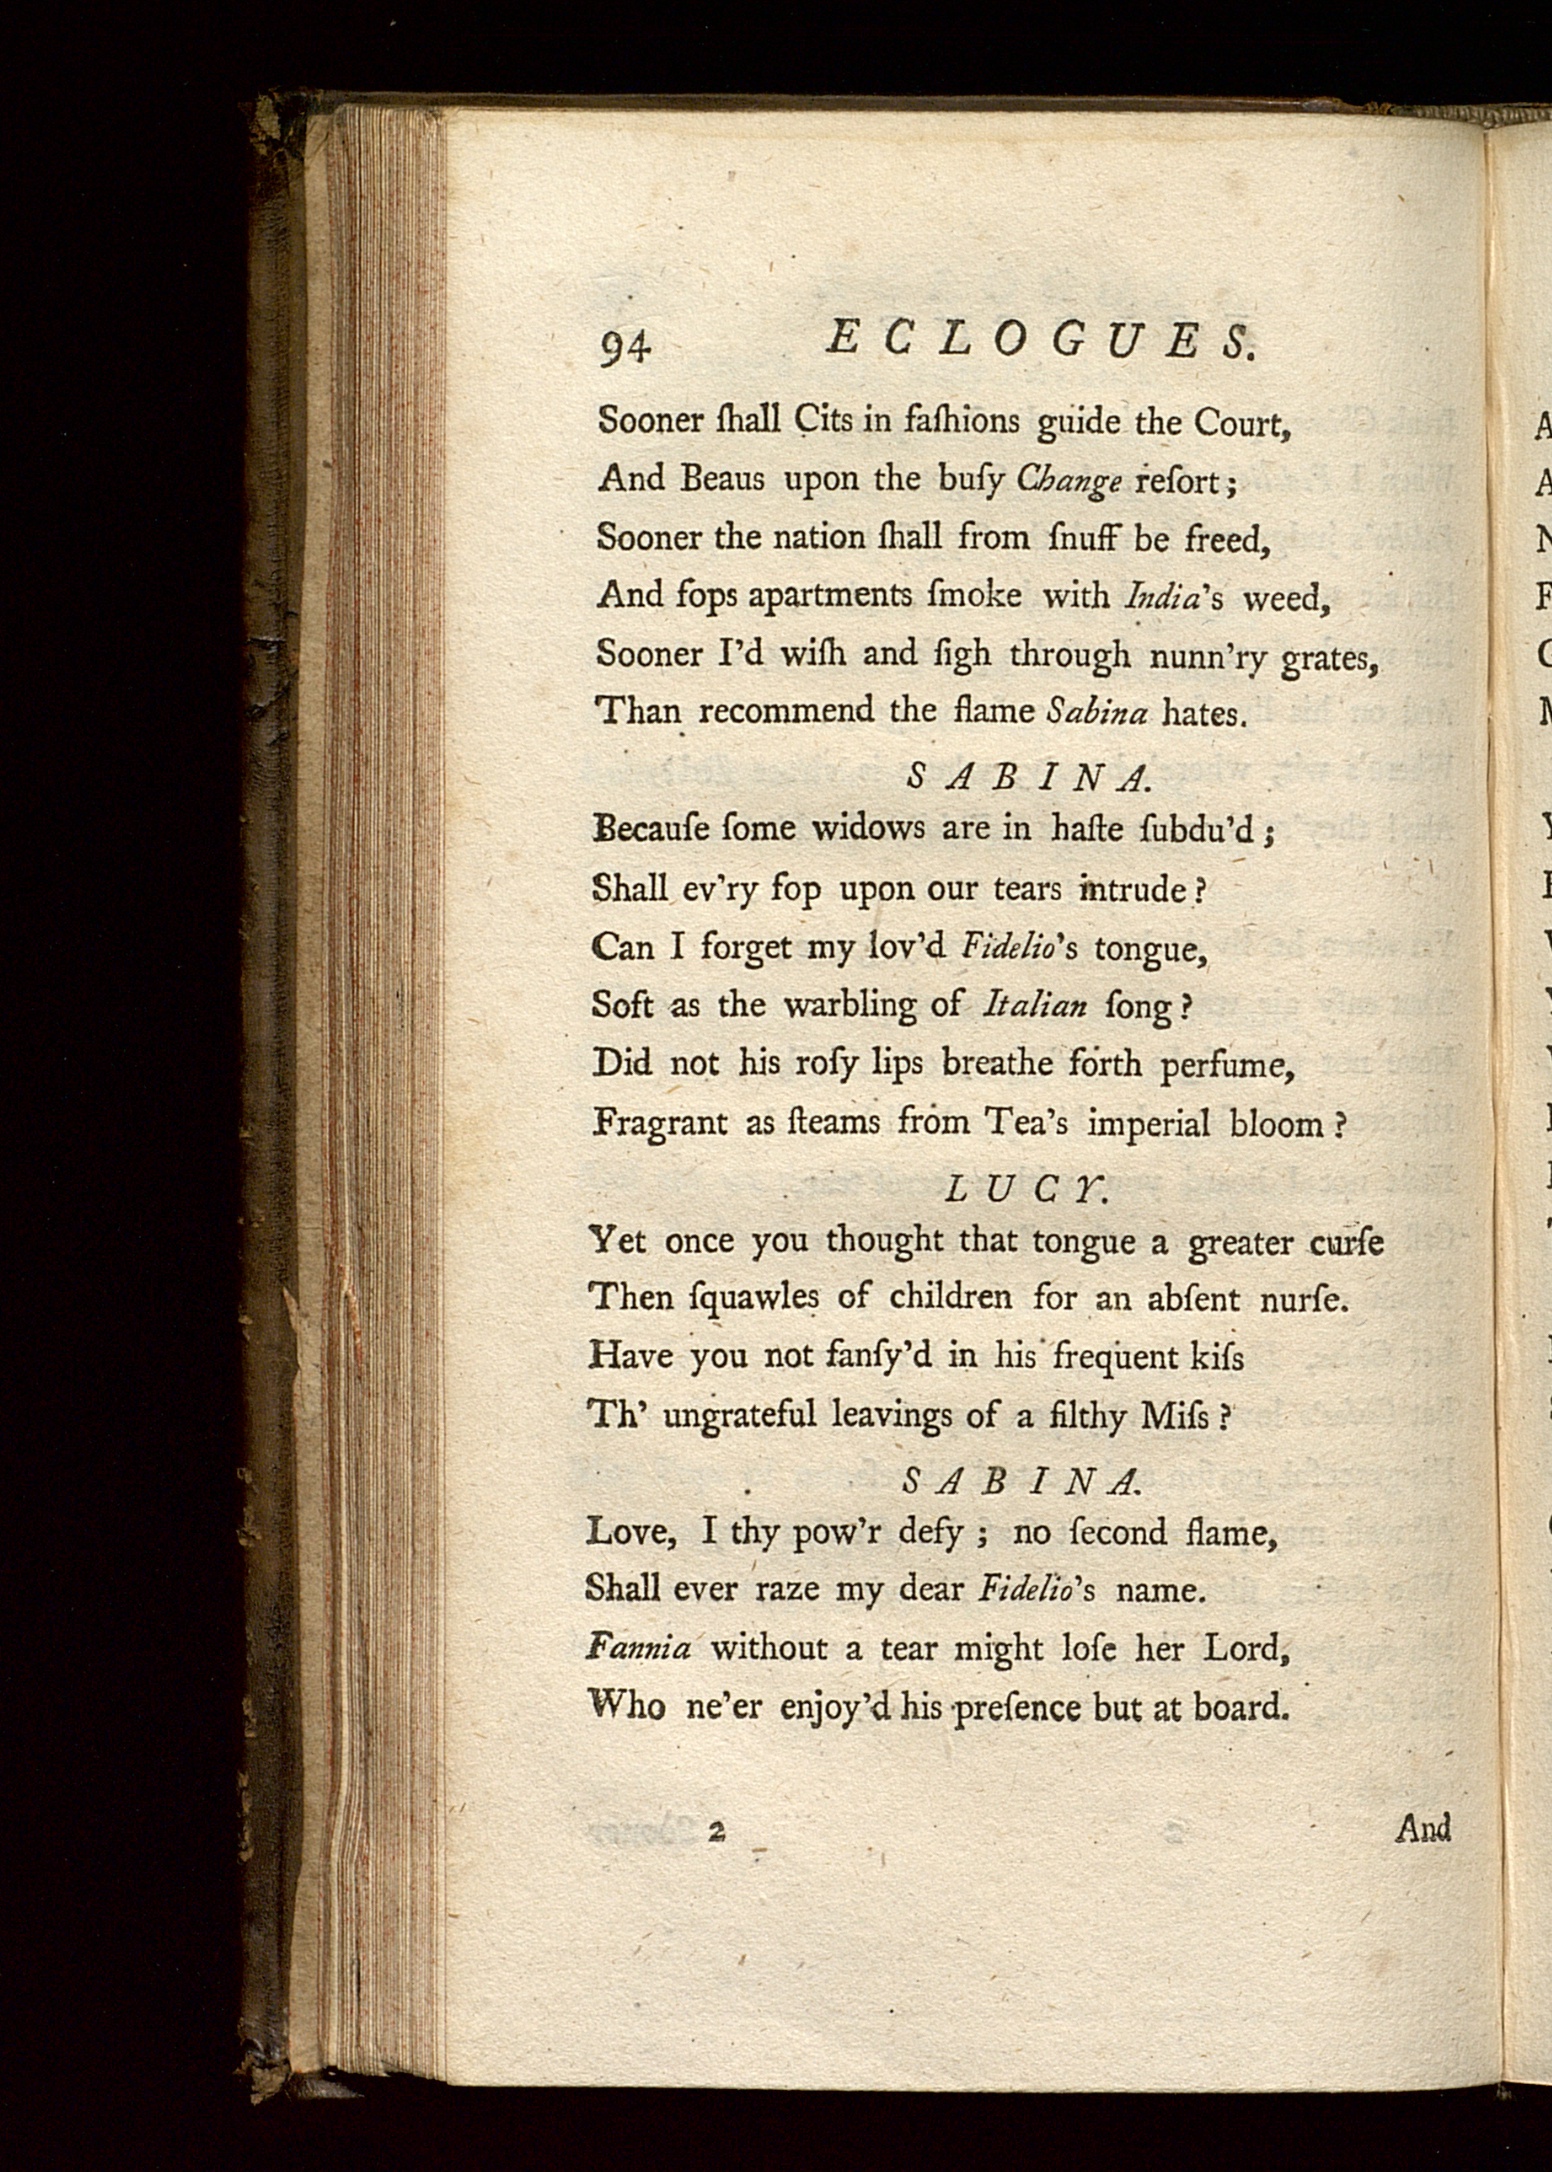 94 ECLOGUES.
Sooner ſhall Cits in faſhions guide the Court,
And Beaus upon the buſy Change reſort;
Sooner the nation ſhall from ſnuff be freed,
And fops apartments ſmoke with India's weed,
Sooner I'd wiſh and ſigh through nunn'ry grates,
Than recommend the flame Sabina hates.
SABINA.
Becauſe ſome widows are in haſte ſubdu'd;
Shall ev'ry fop upon our tears intrude?
Can I forget my lov'd Fidelio's tongue,
Soft as the warbling of Italian ſong?
Did not his roſy lips breathe forth perfume,
Fragrant as ſteams from Tea's imperial bloom?
LUCY.
Yet once you thought that tongue a greater curſe
Then ſquawles of children for an abſent nurſe.
Have you not fanſy'd in his frequent kiſs
Th' ungrateful leavings of a filthy Miſs?
SABINA.
Love, I thy pow'r defy; no ſecond flame,
Shall ever raze my dear Fidelio's name.
Fannia without a tear might loſe her Lord,
Who ne'er enjoy'd his preſence but at board.
2 And